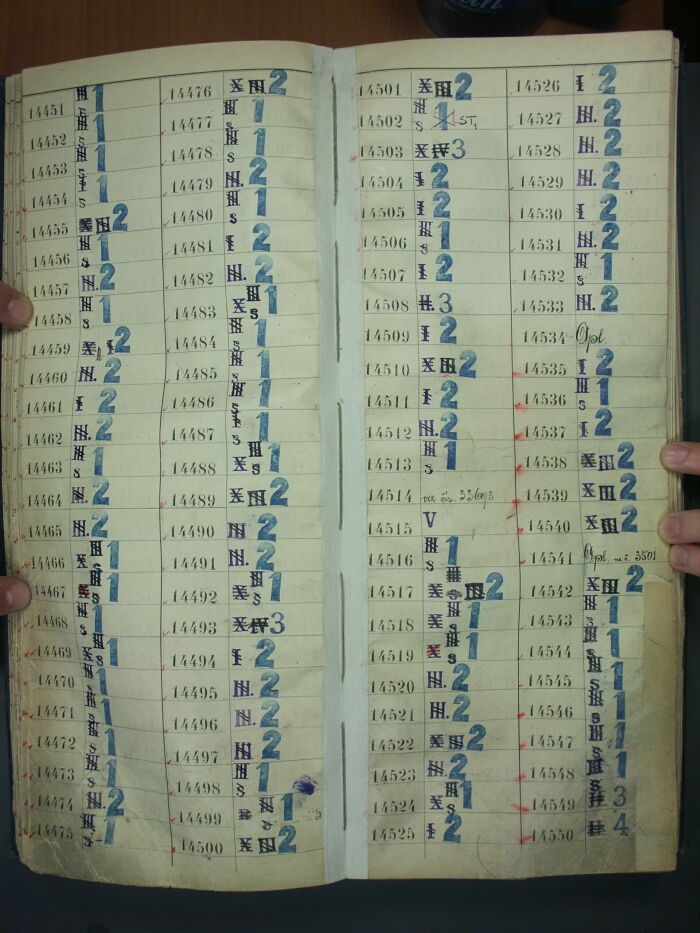 14451 III S 1
14452 III S 1
14453 III S 1
14454 I S 1
14455 X III 2
14456 III S 1
14457 III. 2
14458 III S 1
14459 X I 2
14460 III. 2
14461 I 2
14462 III. 2
14463 III S 1
14464 III. 2
14465 III. 2
14466 X III S 1
14467 X III S 1
14468 III S 1
14469 X III S 1
14470 III S 1
14471 III S 1
14472 III S 1
14473 III S 1
14474 III. 2
14475 III. S 1
14476 X III 2
14477 III S 1
14478 III S 1
14479 III. 2
14480 III S 1
14481 I 2
14482 III. 2
14483 X III S 1
14484 III S 1
14485 III S 1
14486 III S 1
14487 I S 1
14488 X III S 1
14489 X III 2
14490 III 2
14491 III. 2
14492 X III S 1
14493 X IV 3
14494 I 2
14495 III. 2
14496 III. 2
14497 III 2
14498 III S 1
14499 III S 1
14500 X III 2
14501 X III 2
14502 III S 1 ST,
14503 X IV 3
14504 I 2
14505 I 2
14506 III S 1
14507 I 2
14508 II. 3
14509 I 2
14510 X III 2
14511 I 2
14512 III. 2
14513 III S 1
14514 viz
14515 V
14516 III S 1
14517 X III 2
14518 X III S 1
14519 X III S 1
14520 III. 2
14521 III. 2
14522 X III 2
14523 III. 2
14524 X III S 1
14525 I 2
14526 I 2
14527 III. 2
14528 III. 2
14529 III. 2
14530 I 2
14531 III. 2
14532 III S 1
14533 III. 2
14534 Opl.
14535 I 2
14536 III S 1
14537 I 2
14538 X III 2
14539 X III 2
14540 X III 2
14541 Opl. 3501
14542 X III 2
14543 III S 1
14544 III S 1
14545 III S 1
14546 III S 1
14547 III S 1
14548 III S 1
14549 II 3
14550 II 4